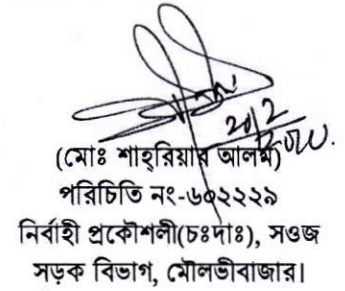 ২০/২
(মোঃ শাহ্‌রিয়ার আলম)
পরিচিতি নং-৬০২২২৯
নির্বাহী প্রকৌশলী(চঃদাঃ), সওজ
সড়ক বিভাগ, মৌলভীবাজার।